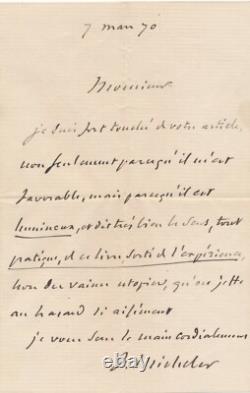 7 mars 70
Monsieur
je suis fort touché de votre article,
non seulement parcequ'il m'est
favorable, mais parcequ'il est
lumineux, et dit très bien le sens, tout
pratique, de ce livre sorti de l'expérience,
non des vaines utopies, qu'on jette
au hasard si aisément
je vous serre la main cordialement
J. Michelet
ebay